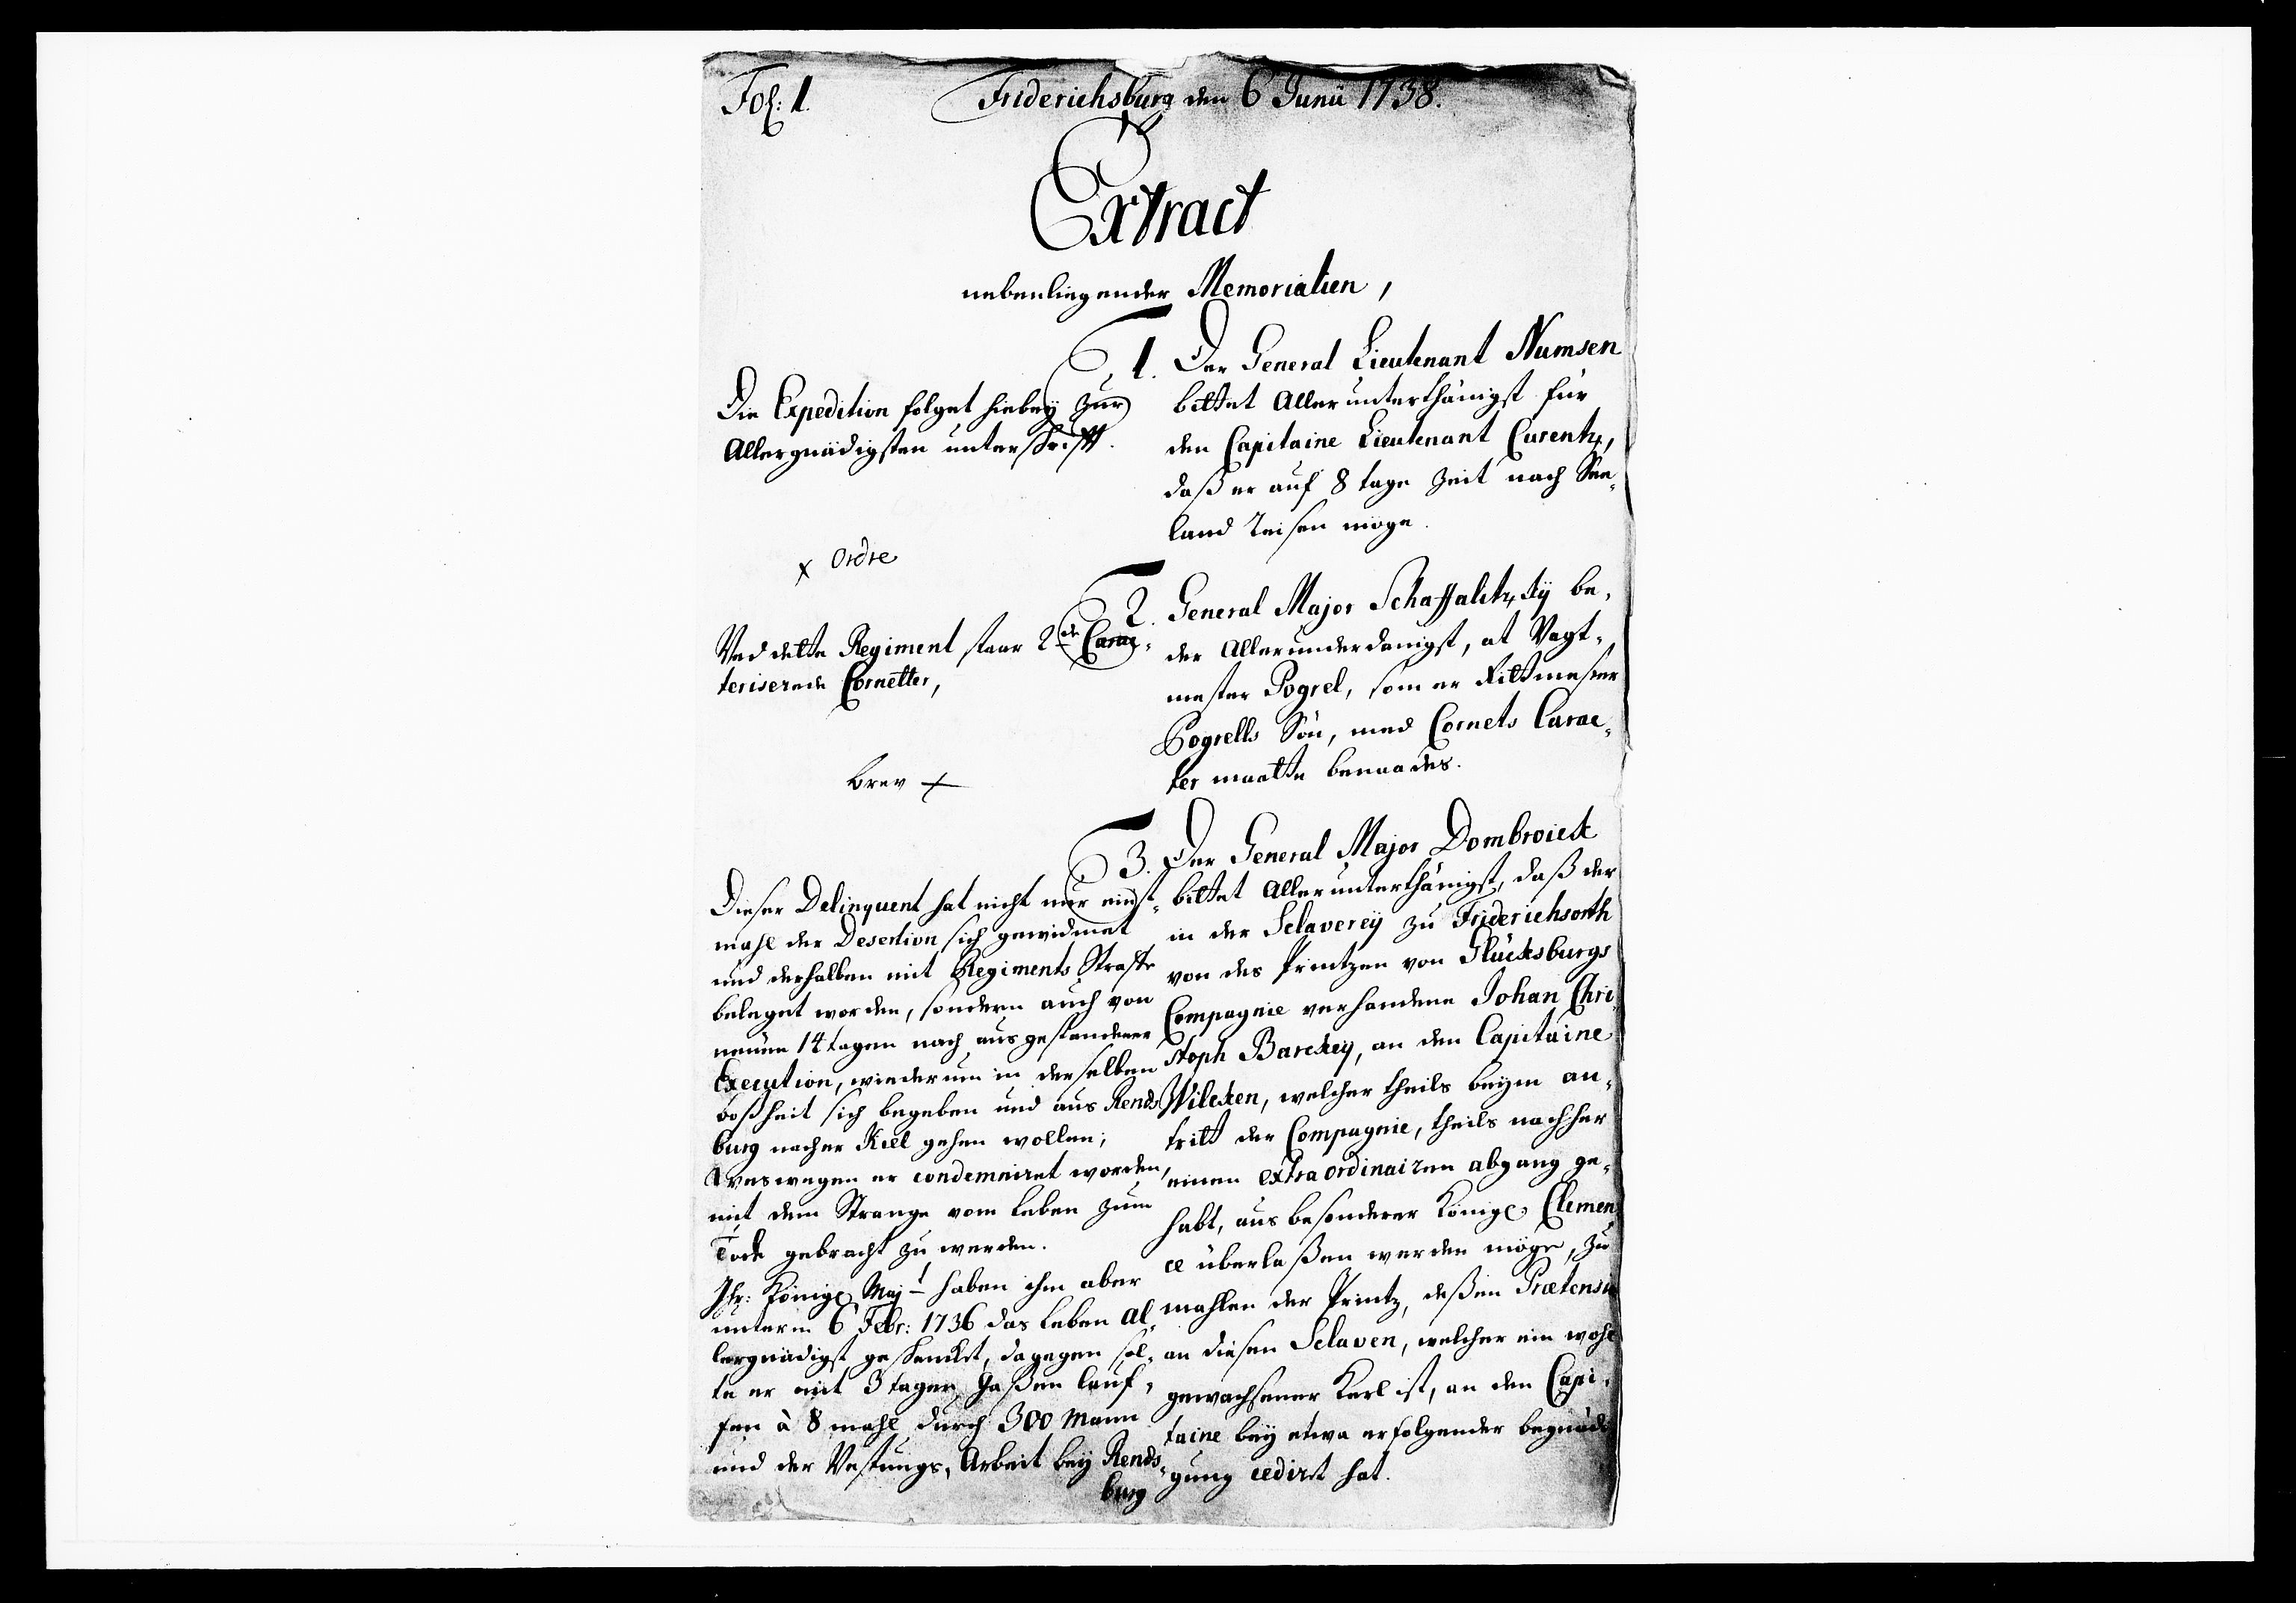 Fol: 1.
Friderichsburg den 6 Junii 1738.
Extract
nebenliegender Memorialien,
1. Der General Lieutenant Numsen
bittet Allerunterthänigst für
den Capitaine Lieutenant Curentz,
daß er auf 8 tage Zeit nach See-
land reisen möge.
Die Expedition folget hiebey zur
Allergnädigsten unterschrifft.
x Ordre
2. General Major Schaffalitzky be-
der Allerunderdanigst, at Vagt-
mester Pogrel, som er Rittmester
Pogrells Sön, med Cornets Carac-
ter maatte benaades.
Ved dette Regiment staar 2de Carac-
teriserede Cornetter,
brev x
3. Der General Major Dombroick
bittet Allerunterthänigst, daß der
in der Sclaverey zu Friderichsorth
von des Printzen von Glücksburgs
Compagnie verhandene Johan Chri-
stoph Barckey, an den Capitaine
Wilcken, welcher theils beym an-
tritt der Compagnie, theils nachher
einen extraordinairen abgang ge-
habt, aus besonderer Königl. Clemen-
ce überlaßen werden möge, zu-
mahlen der Printz, deßen Prætension
an diesen Sclaven, welcher ein wohl
gewachsener Kerl ist, an den Capi-
taine bey etwa erfolgender begnadi-
gung cediret hat.
Dieser Delinquent hat nicht nur einst-
mahl der Desertion sich gewidmet
und derhalben mit Regiments Straffe
beleget worden, sondern auch von
neuen 14 tagen nach ausgestandener
Execution, wiederum in derselben
boßheit sich begeben und aus Rends-
burg nacher Kiel gehen wollen;
Weswegen er condemniret worden,
mit dem Strange vom Leben zum
Tode gebracht zu werden.
Ihr: Königl. Mayt. haben ihm aber
unterm 6 Febr: 1736 das Leben al-
lergnädigst geschencket, dagegen sol-
te er mit 3 tagen Gaßen lauf-
fen à 8 mahl durch 300 Mann
und der Vestungs-Arbeit bey Rends-
burg